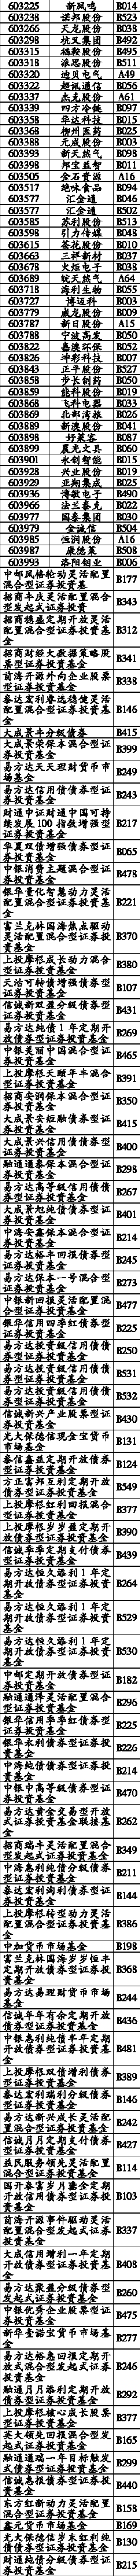 603225 新凤鸣 B014
603238 诺邦股份 B523
603266 天龙股份 B038
603298 杭叉集团 B492
603315 福鞍股份 B495
603318 派思股份 B511
603320 迪贝电气 A49
603322 超讯通信 B056
603337 杰克股份 A61
603339 四方冷链 B097
603358 华达科技 B015
603368 柳州医药 B025
603388 元成股份 B003
603393 新天然气 B098
603398 邦宝益智 B011
603505 金石资源 A16
603517 绝味食品 B094
603577 汇金通 B046
603577 汇金通 B502
603585 苏利股份 B513
603598 引力传媒 B048
603615 茶花股份 B010
603663 三祥新材 B037
603678 火炬电子 B038
603689 皖天然气 A64
603718 海利生物 B055
603727 博迈科 B003
603779 威龙股份 B009
603787 新日股份 A15
603788 宁波高发 B050
603822 嘉澳环保 B052
603826 坤彩科技 B007
603843 正平股份 B527
603858 步长制药 B050
603859 能科股份 B019
603868 飞科电器 B033
603869 北部湾旅 B026
603889 新澳股份 B041
603898 好莱客 B087
603899 晨光文具 B060
603901 永创智能 B015
603928 兴业股份 B019
603929 亚翔集成 B025
603936 博敏电子 B490
603966 法兰泰克 B022
603977 国泰集团 B030
603979 金诚信 B504
603985 恒润股份 A16
603987 康德莱 B508
603993 洛阳钼业 B006
中邮风格轮动灵活配置
混合型证券投资基金 B177
招商丰庆灵活配置混合
型发起式证券投资基 B343
招商稳盛定期开放灵活
配置混合型证券投资基
金 B312
招商财经大数据策略股
票型证券投资基金 B341
前海开源外向企业股票
型证券投资基金 B338
泰达宏利睿选稳健灵活
配置混合型证券投资基
金 B146
大成景丰分级债券 B415
大成景荣保本混合型证
券投资基金 B399
易方达天天理财货币市
场基金 B249
易方达信用债债券型证
券投资基金 B243
财通中证财通中国可持
续发展100指数增强型
证券投资基金 B217
华夏双债增强债券型证
券投资基金 B065
中银消费主题混合型证
券投资基金 B478
银华量化智慧动力灵活
配置混合型证券投资基
金 B221
富兰克林国海焦点驱动
灵活配置混合型证券投
资基金 B370
上投摩根成长动力混合
型证券投资基金 B380
天治可转债增强债券型
证券投资基金 B107
信诚新双盈分级债券型
证券投资基金 B431
易方达纯债1年定期开
放债券型证券投资基金 B269
中银美丽中国混合型证
券投资基金 B465
上投摩根天颐年丰混合
型证券投资基金 B391
招商安润保本混合型证
券投资基金 B350
大成景安短融债券型证
券投资基金 B415
大成景兴信用债债券型
证券投资基金 B400
融通通泰保本混合型证
券投资基金 B298
易方达高等级信用债债
券型证券投资基金 B267
大成景旭纯债债券型证
券投资基金 B401
中海安鑫保本混合型证
券投资基金 B214
易方达裕丰回报债券型
证券投资基金 B245
易方达保本一号混合型
证券投资基金 B273
中银新回报灵活配置混
合型证券投资基金 B477
银华信用四季红债券型
证券投资基金 B225
易方达投资级信用债债
券型证券投资基金 B250
易方达投资级信用债债
券型证券投资基金 B531
易方达投资级信用债债
券型证券投资基金 B532
信诚新兴产业股票型证
券投资基金 B430
光大保德信现金宝货币
市场基金 B131
泰信鑫益定期开放债券
型证券投资基金 B124
方正富邦互利定期开放
债券型证券投资基金 B549
上投摩根红利回报混合
型证券投资基金 B377
上投摩根岁岁盈定期开
放债券型证券投资基金 B390
信诚季季定期支付债券
型证券投资基金 B439
易方达恒久添利1年定
期开放债券型证券投资
基金 B264
易方达恒久添利1年定
期开放债券型证券投资
基金 B529
易方达恒久添利1年定
期开放债券型证券投资
基金 B530
中邮定期开放债券型证
券投资基金 B182
融通通泽灵活配置混合
型证券投资基金 B296
银华信用季季红债券型
证券投资基金 B225
银华永利债券型证券投
资基金 B226
中海纯债债券型证券投
资基金 B214
中银中高等级债券型证
券投资基金 B470
易方达黄金交易型开放
式证券投资基金联接基
金 B262
招商瑞丰灵活配置混合
型发起式证券投资基金 B349
中海惠利纯债分级债券
型证券投资基金 B211
泰达宏利淘利债券型证
券投资基金 B144
上投摩根转型动力灵活
配置混合型证券投资基
金 B386
中加货币市场基金 B198
富兰克林国海岁岁恒丰
定期开放债券型证券投
资基金 B368
易方达易理财货币市场
基金 B244
信诚年年有余定期开放
债券型证券投资基金 B436
中银惠利纯债半年定期
开放债券型证券投资基
金 B481
上投摩根双债增利债券
型证券投资基金 B389
泰达宏利瑞利分级债券
型证券投资基金 B146
易方达新兴成长灵活配
置混合型证券投资基金 B242
信诚月月定期支付债券
型证券投资基金 B427
益民服务领先灵活配置
混合型证券投资基金 B114
国开泰富岁月鎏金定期
开放信用债券型证券投
资基金 B103
前海开源事件驱动灵活
配置混合型发起式证券
投资基金 B337
大成信用增利一年定期
开放债券型证券投资基
金 B408
易方达聚盈分级债券型
发起式证券投资基金 B260
中银优秀企业股票型证
券投资基金 B475
新华壹诺宝货币市场基
金 B277
易方达裕惠回报定期开
放式混合型发起式证券
投资基金 B246
融通月月添利定期开放
债券型证券投资基金 B292
上投摩根核心成长股票
型证券投资基金 B377
安大领先回报混合型发
起式证券投资基金 B165
融通通瑞一年目标触发
式债券型证券投资基金 B299
信诚惠报债券型证券投
资基金 B440
东方红新动力灵活配置
混合型证券投资基金 B158
鑫元货币市场基金 B169
光大保德信岁末红利纯
债债券型证券投资基金 B130
财通纯债分级债券型证
券投资基金 B215